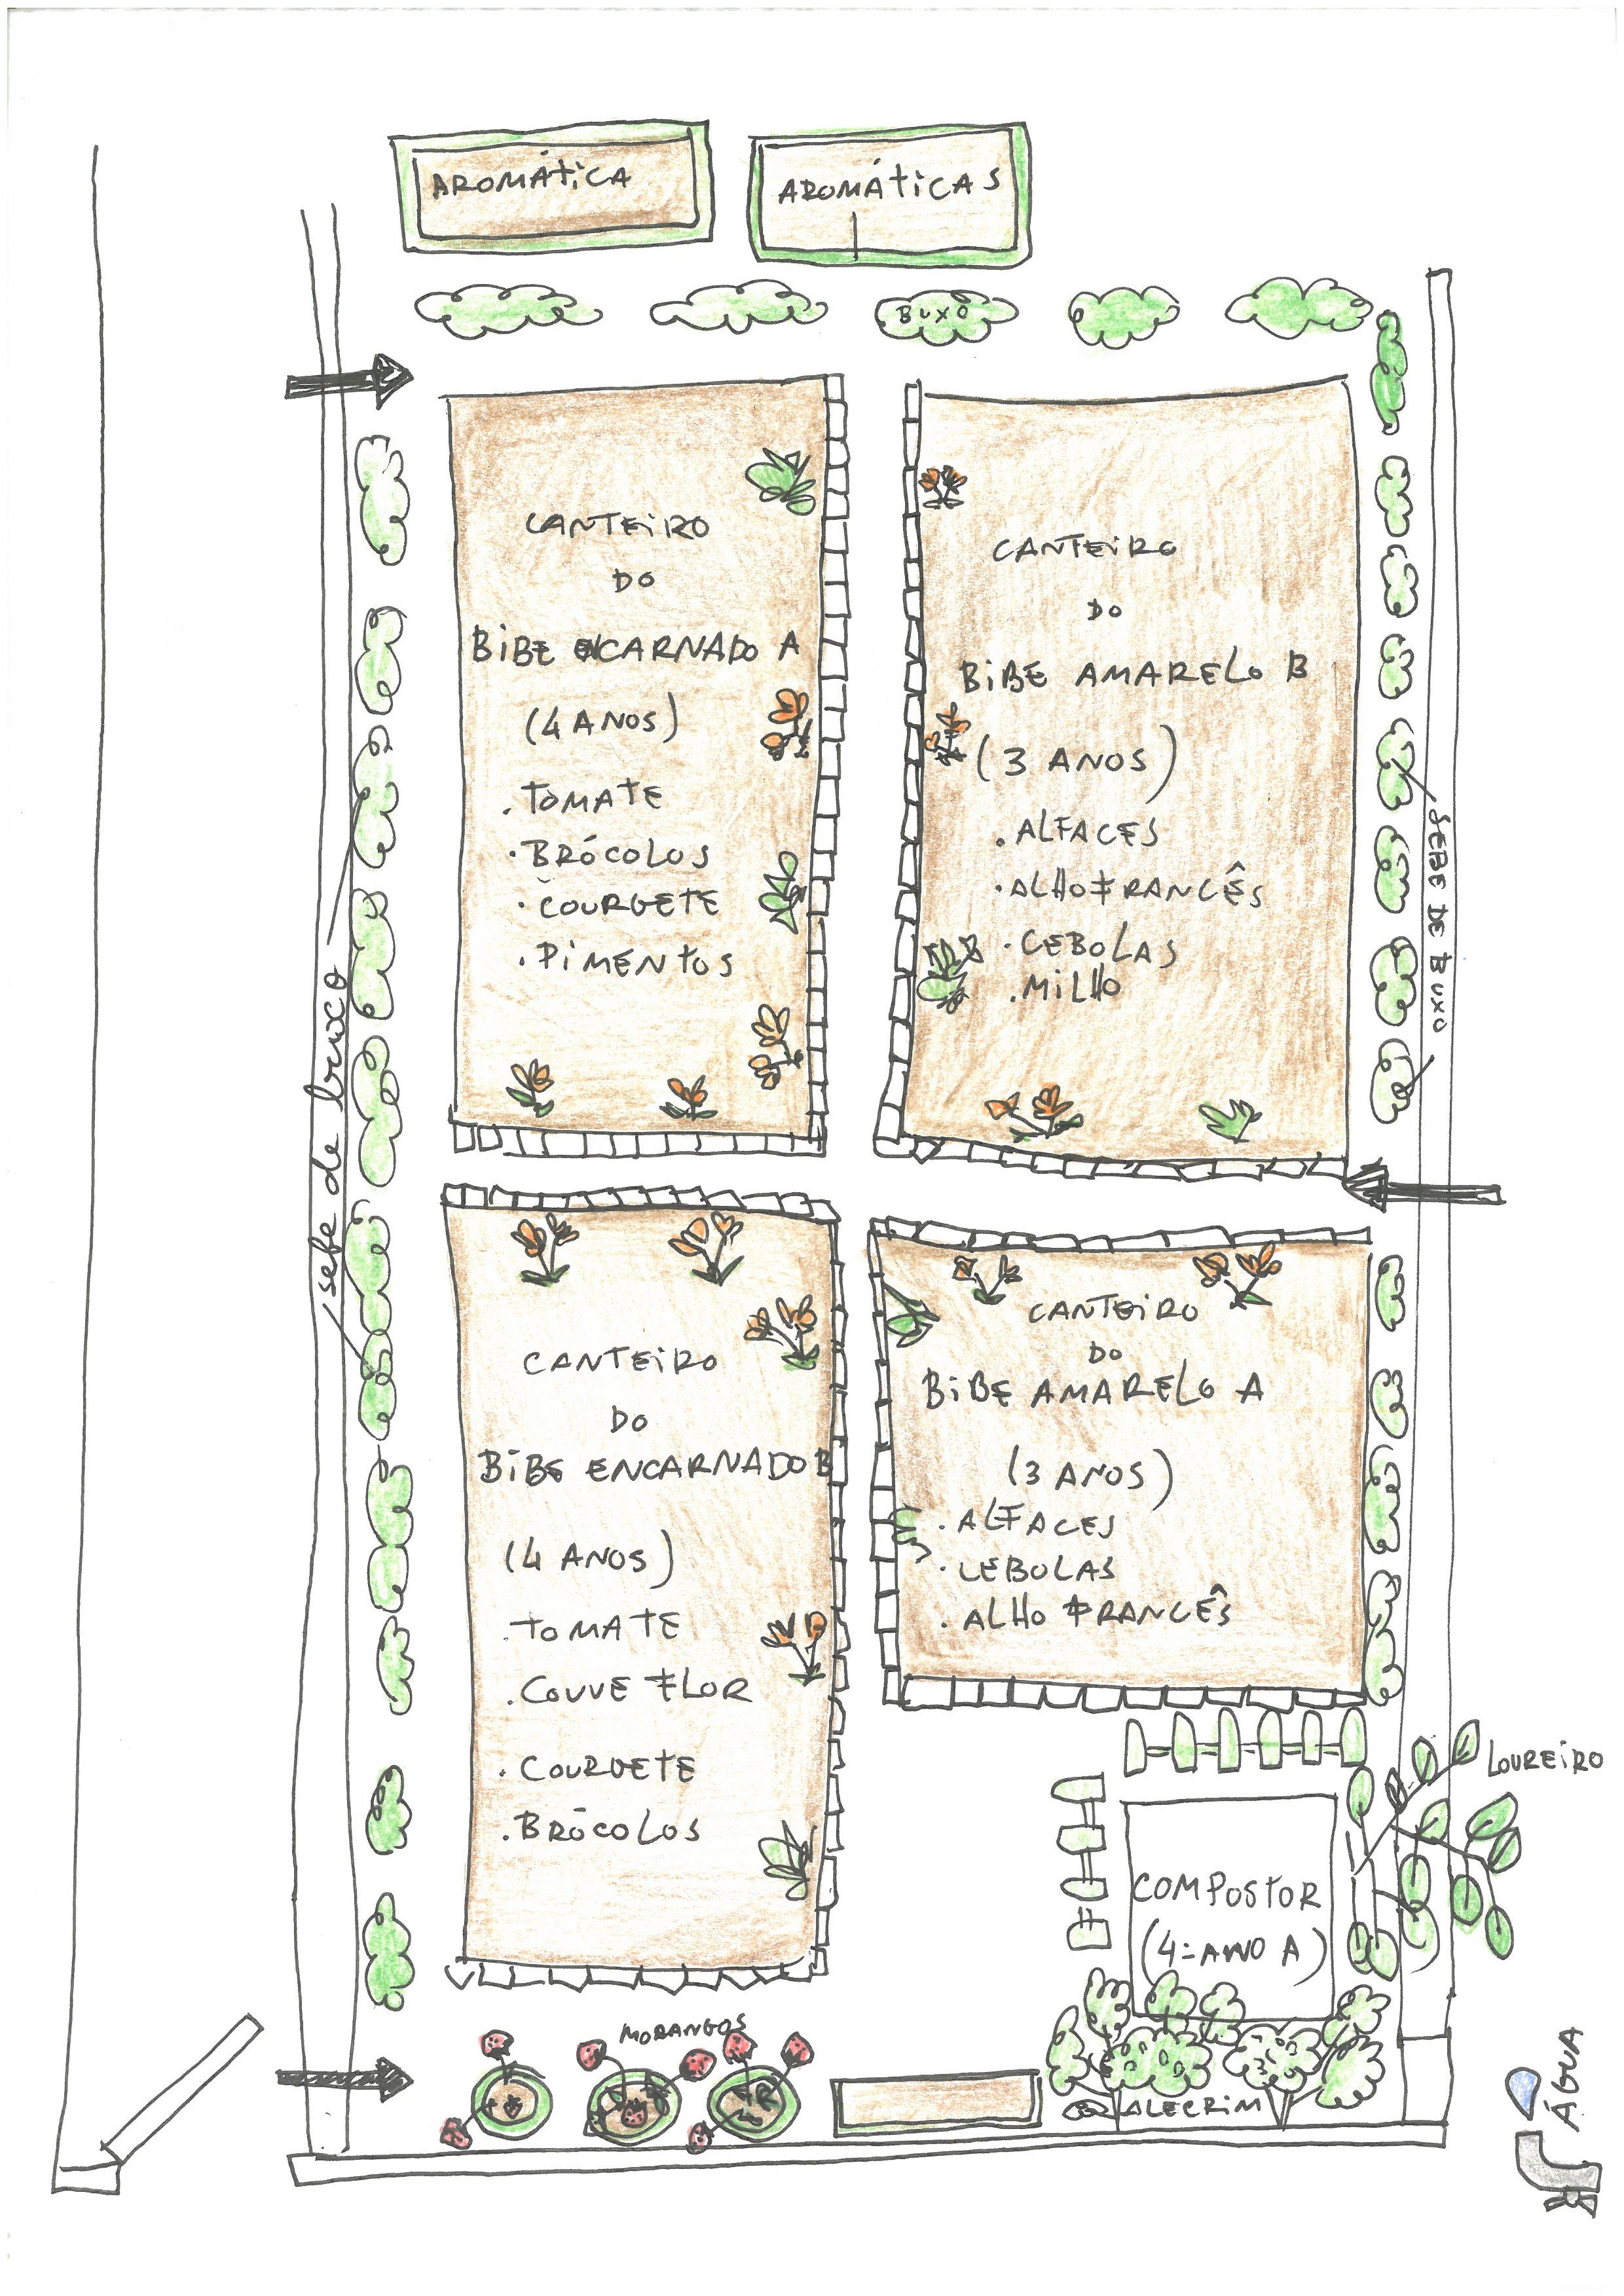 AROMÁTICA
AROMÁTICAS
BUXO
CANTEIRO
DO
BIBE ENCARNADO A
(4 ANOS)
.TOMATE
.BRÓCOLOS
.COURGETE
.PIMENTOS
CANTEIRO
DO
BIBE AMARELO B
(3 ANOS)
.ALFACES
.ALHO FRANCÊS
.CEBOLAS
.MILHO
sebe de buxo
SEBE DE BUXO
CANTEIRO
DO
BIBE ENCARNADO B
(4 ANOS)
.TOMATE
.COUVE FLOR
.COURGETE
.BRÓCOLOS
CANTEIRO
DO
BIBE AMARELO A
(3 ANOS)
.ALFACES
.CEBOLAS
.ALHO FRANCÊS
LOUREIRO
COMPOSTOR
(4=ANO A)
MORANGOS
ALECRIM
ÁGUA